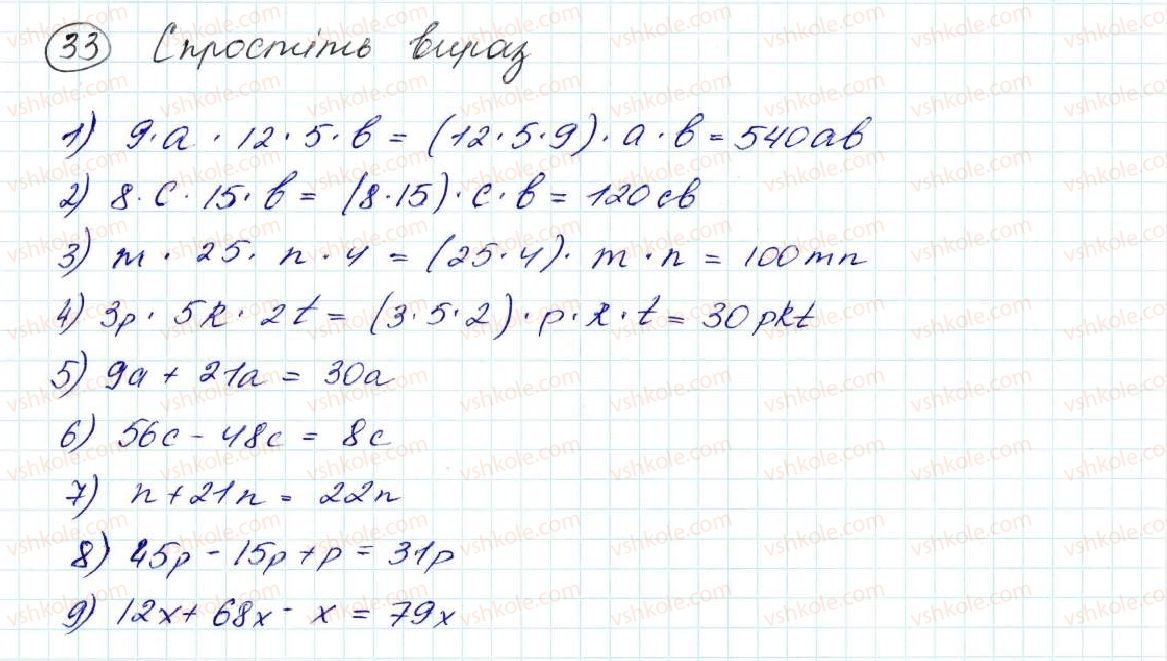 33 Спростіть вираз
1) 9·a·12·5·b = (12·5·9)·a·b = 540ab
2) 8·c·15·b = (8·15)·c·b = 120cb
3) m·25·n·4 = (25·4)·m·n = 100mn
4) 3p·5k·2t = (3·5·2)·p·k·t = 30pkt
5) 9a + 21a = 30a
6) 56c - 48c = 8c
7) n + 21n = 22n
8) 45p - 15p + p = 31p
9) 12x + 68x - x = 79x
vshkole.com